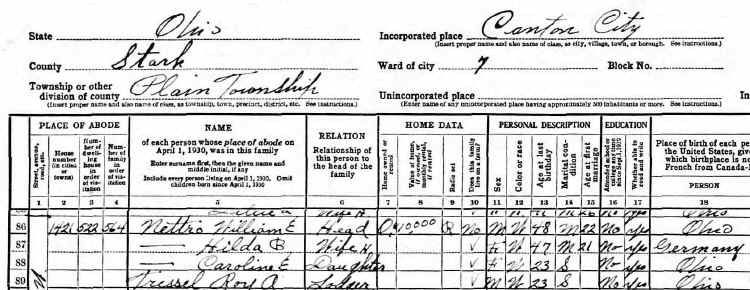 State Ohio Incorporated place Canton City
(Insert proper name and also name of class, as city, village, town, or borough. See instructions.)
County Stark Ward of city 7 Block No.
Township or other
division of county Plain Township Unincorporated place
(Insert proper name and also name of class, as township, town, precinct, district, etc. See instructions.) (Enter name of any unincorporated place having approximately 500 inhabitants or more. See instructions.) In
PLACE OF ABODE NAME RELATION HOME DATA PERSONAL DESCRIPTION EDUCATION
of each person whose place of abode on
April 1, 1930, was in this family
Enter surname first, then the given name and
middle initial, if any
Include every person living on April 1, 1930. Omit
children born since April 1, 1930
Relationship of
this person to
the head of the
family
Street, avenue, road, etc.
House
number
(in cities
or towns)
Number
of dwelling
house in
order of
visitation
Number
of family
in order of
visitation
Home owned or rented
Value of home, if owned, or monthly rental, if rented
Radio set
Does this family live on a farm?
Sex
Color or race
Age at last birthday
Marital condition
Age at first marriage
Attended school or college any time since Sept. 1, 1929
Whether able to read and write
Place of birth of each per
the United States, give
which birthplace is no
French from Canada-
PERSON
1 2 3 4 5 6 7 8 9 10 11 12 13 14 15 16 17 18
Wife H Ohio
86 1421 522 564 Nettro William E Head O $10,000 R No M W 48 M 22 No yes Ohio
87 — Hilda B Wife H ✓ F W 47 M 21 No yes Germany
88 — Caroline E Daughter ✓ F W 23 S No yes Ohio
89 Tressel Roy A Lodger ✓ M W 23 S No yes Ohio